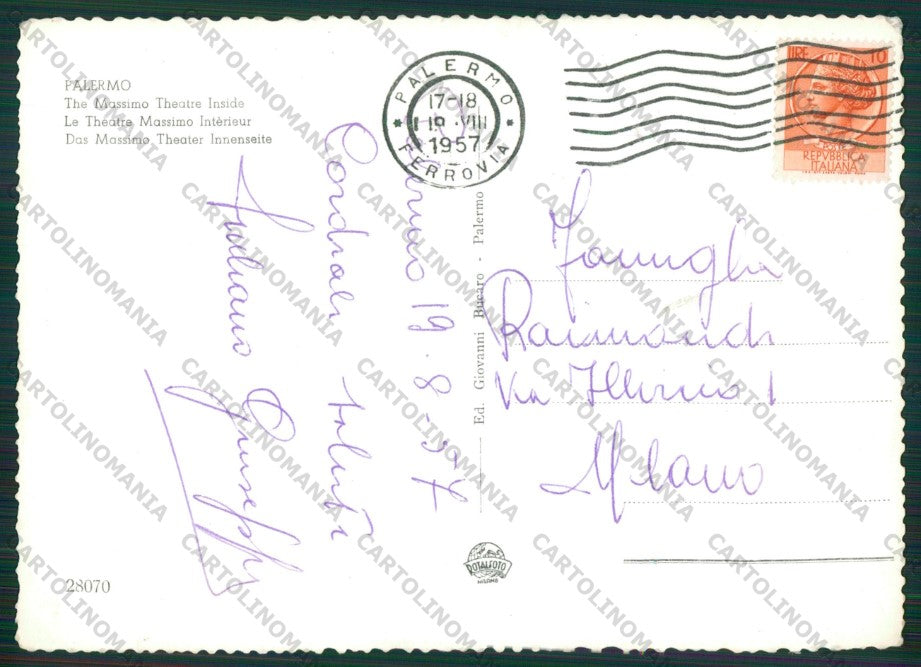 PALERMO
The Massimo Theatre Inside
Le Théatre Massimo Intèrieur
Das Massimo Theater Innenseite
PALERMO
17-18
19 VIII
1957
FERROVIA
LIRE 10
POSTE
REPVBBLICA
ITALIANA
Palermo 19.8.57
Cordiali saluti
Giuseppe
Ed. Giovanni Bucaro - Palermo
Famiglia
Raimondi
Via Illirico 1
Milano
ROTALFOTO
MILANO
28070
CARTOLINOMANIA